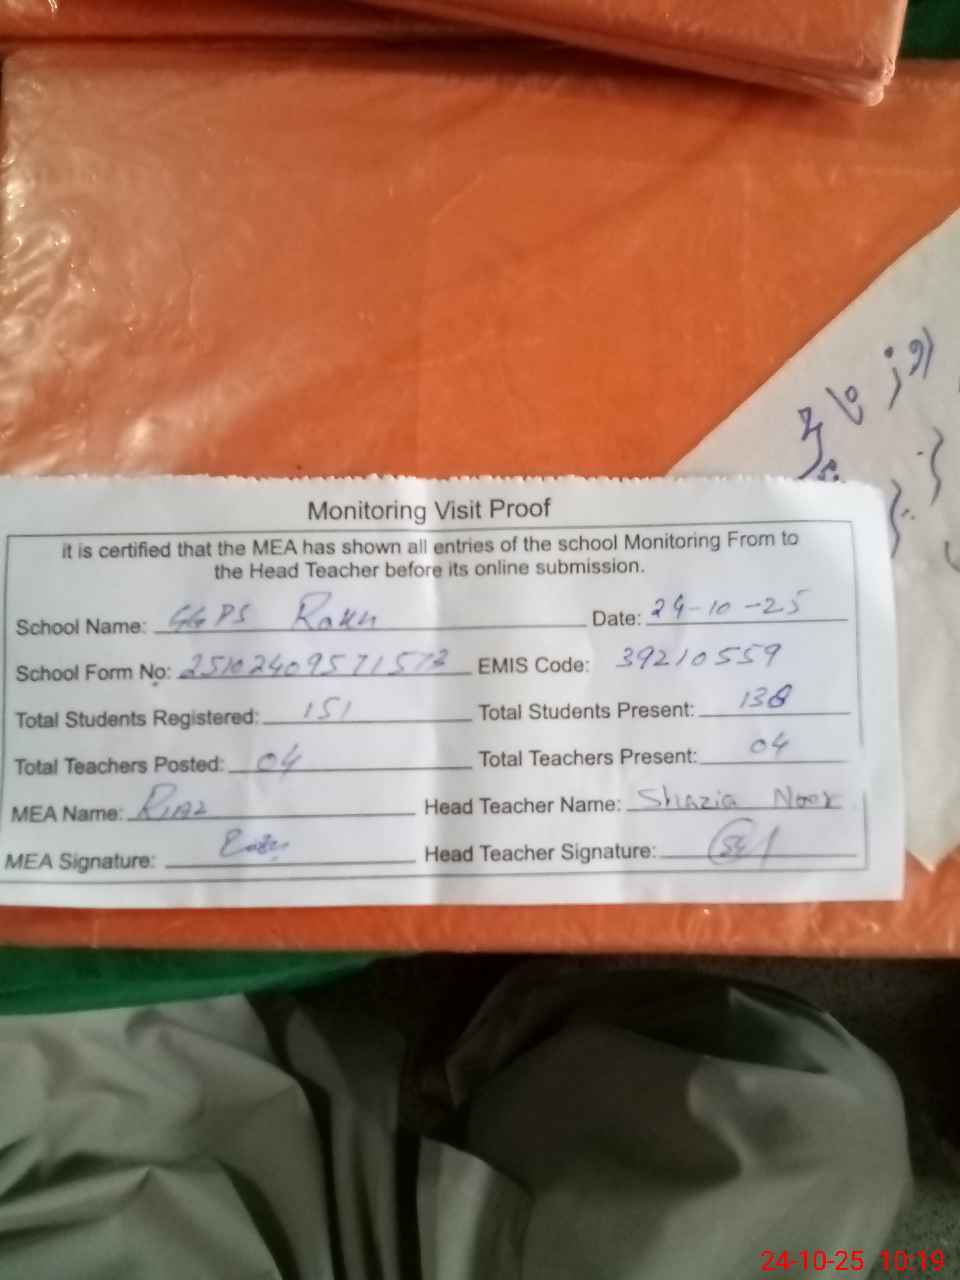 Monitoring Visit Proof
it is certified that the MEA has shown all entries of the school Monitoring From to
the Head Teacher before its online submission.
School Name: GGPS Date: 24-10-25
School Form No: EMIS Code: 39210559
Total Students Registered: 151 Total Students Present: 138
Total Teachers Posted: 04 Total Teachers Present: 04
MEA Name: Riaz Head Teacher Name: Shazia Noor
MEA Signature: Head Teacher Signature:
24-10-25 10:19